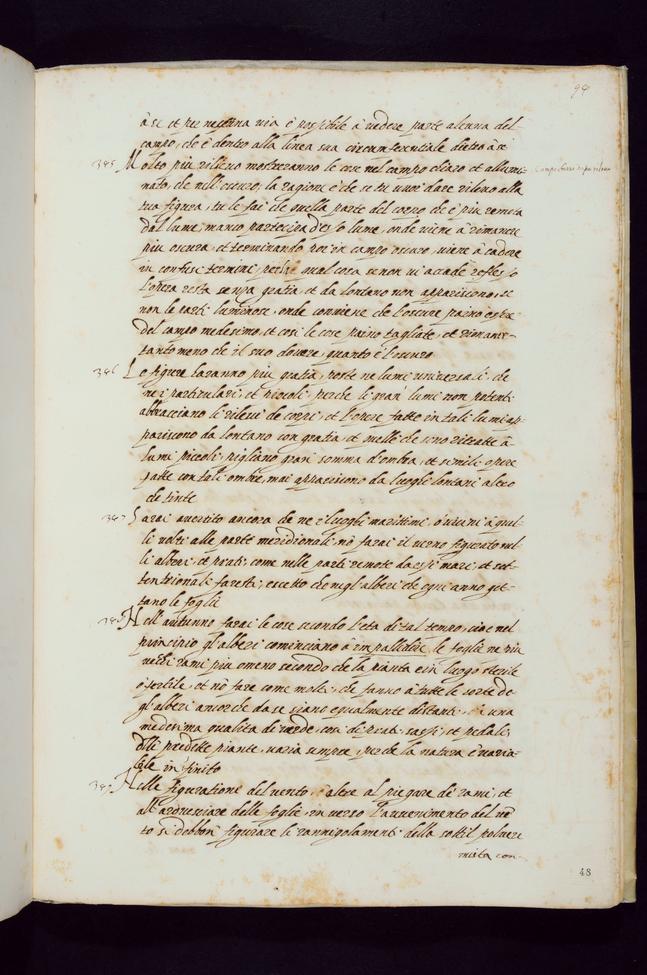 94
à se et per nessuna via è possibile à vedere parte alcuna del
campo, che è dentro alla linea sua circunferentiale dietro à se
345 Molto più rilievo mostreranno le cose nel campo chiaro et allumi-
nato, che nell'oscuro, la ragione è che se tu vuoi dare rilievo alla
tua figura, tu le fai che quella parte del corpo che è più remota
dal lume, manco partecipa d'esso lume, onde viene à rimanere
più oscura, et terminando poi in campo oscuro, viene à cadere
in confusi termini, per la qual cosa se non vi accade reflesso
l'opera resta senza gratia, et da lontano non appariscono, se
non le parti luminose, onde conviene che l'oscure paino esser
del campo medesimo, et cosi le cose paino tagliate, et rimanere
tanto meno che il suo dovere, quanto è l'oscuro
346 Le figure haranno più gratia, poste ne lumi universali, che
ne i particulari, et piccoli, perche li gran lumi non potenti
abbracciano li rilievi de corpi, et l'opere fatte in tali lumi ap-
pariscono da lontano con gratia, et quelle che sono ritratte à
lumi piccoli pigliano gran somma d'ombra, et simili opere
fatte con tali ombre, mai appariscono da luoghi lontani altro
che tinte
347 Sarai avertito ancora che ne i luoghi maritimi, ò vicini à quel-
li volti alle parte meridionali nõ farai il verno figurato nel-
li alberi, et prati, come nelle parti remote da essi mari, et set-
tentrionali faresti, eccetto che negl'alberi che ogni anno get-
tano le foglie
348 Nell'autunno farai le cose secondo l'età di tal tempo, cioe nel
principio gl'alberi cominciano à impallidire le foglie ne più
vecchi rami più ò meno secondo che la pianta è in luogo sterile
ò fertile, et nõ fare come molti, che fanno à tutte le sorte de
gl'alberi ancorche da se siano egualmente distanti, una
medesima qualita di verde, cosi di prati, sassi, et pedali
delli predette piante, varia sempre, perche la natura è varia-
bile in infinito
349 Nelle figuratione del vento, oltre al piegare de rami, et
all'arovesciare delle foglie, in verso l'avvenimento del vẽ
to si debbon figurare li rannugolamenti della sottil polvere
mista con-
48